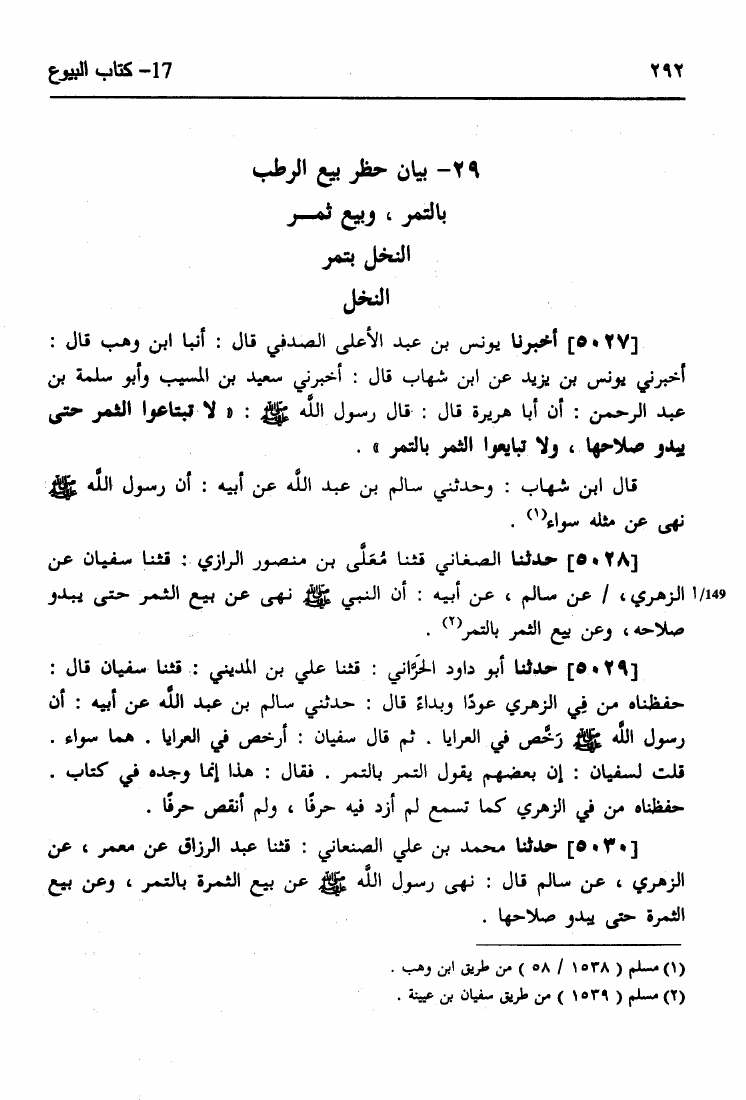 ٢٩٢ 17- كتاب البيوع
٢٩- بيان حظر بيع الرطب
بالتمر ، وبيع ثمـــر
النخل بتمر
النخل
[٥٠٢٧] أخبرنا يونس بن عبد الأعلى الصدفي قال : أنبا ابن وهب قال :
أخبرني يونس بن يزيد عن ابن شهاب قال : أخبرني سعيد بن المسيب وأبو سلمة بن
عبد الرحمن : أن أبا هريرة قال : قال رسول اللَّه ﷺ : « لا تبتاعوا الثمر حتى
يبدو صلاحها ، ولا تبايعوا الثمر بالتمر » .
قال ابن شهاب : وحدثني سالم بن عبد اللَّه عن أبيه : أن رسول اللَّه ﷺ
نهى عن مثله سواء(١) .
[٥٠٢٨] حدثنا الصغاني قثنا مُعَلَّى بن منصور الرازي : قثنا سفيان عن
١٤٩/أ الزهري، / عن سالم ، عن أبيه : أن النبي ﷺ نهى عن بيع الثمر حتى يبدو
صلاحه، وعن بيع الثمر بالتمر(٢) .
[٥٠٢٩] حدثنا أبو داود الحَرَّاني : قثنا علي بن المديني : قثنا سفيان قال :
حفظناه من فِي الزهري عودًا وبداءً قال : حدثني سالم بن عبد اللَّه عن أبيه : أن
رسول اللَّه ﷺ رَخَّص في العرايا . ثم قال سفيان : أرخص في العرايا . هما سواء .
قلت لسفيان : إن بعضهم يقول التمر بالتمر . فقال : هذا إنما وجده في كتاب .
حفظناه من في الزهري كما تسمع لم أزد فيه حرفًا ، ولم أنقص حرفًا .
[٥٠٣٠] حدثنا محمد بن علي الصنعاني : قثنا عبد الرزاق عن معمر ، عن
الزهري ، عن سالم قال : نهى رسول اللَّه ﷺ عن بيع الثمرة بالتمر ، وعن بيع
الثمرة حتى يبدو صلاحها .
(١) مسلم ( ١٥٣٨ / ٥٨ ) من طريق ابن وهب .
(٢) مسلم ( ١٥٣٩ ) من طريق سفيان بن عيينة .